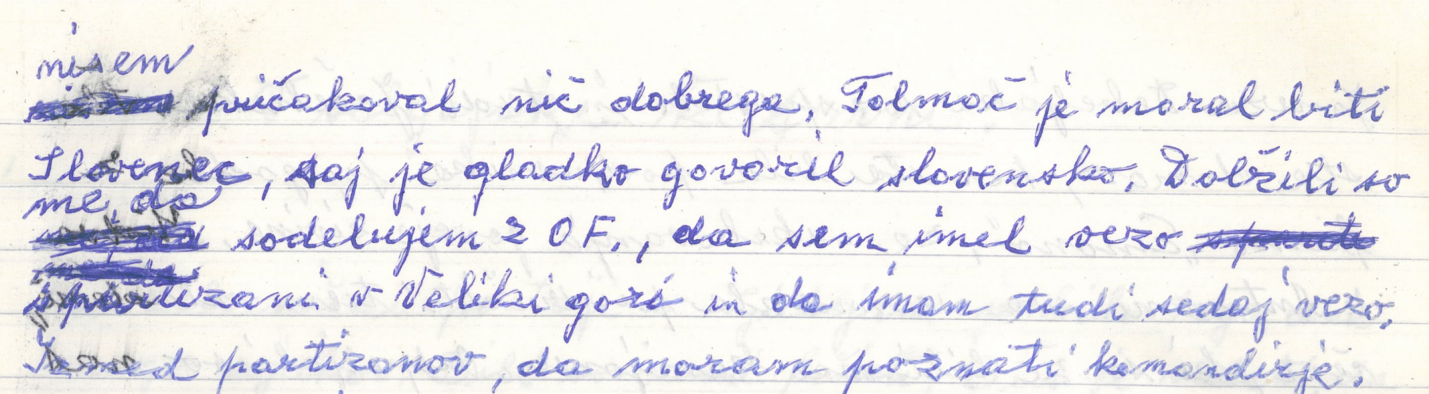 nisem
pričakoval nič dobrega. Tolmoč je moral biti
Slovenec, saj je gladko govoril slovensko. Dolžili so
me, da
sodelujem z OF., da sem imel vezo
s partizani v Veliki gori in da imam tudi sedaj vezo.
partizanov, da moram poznati komandirje.